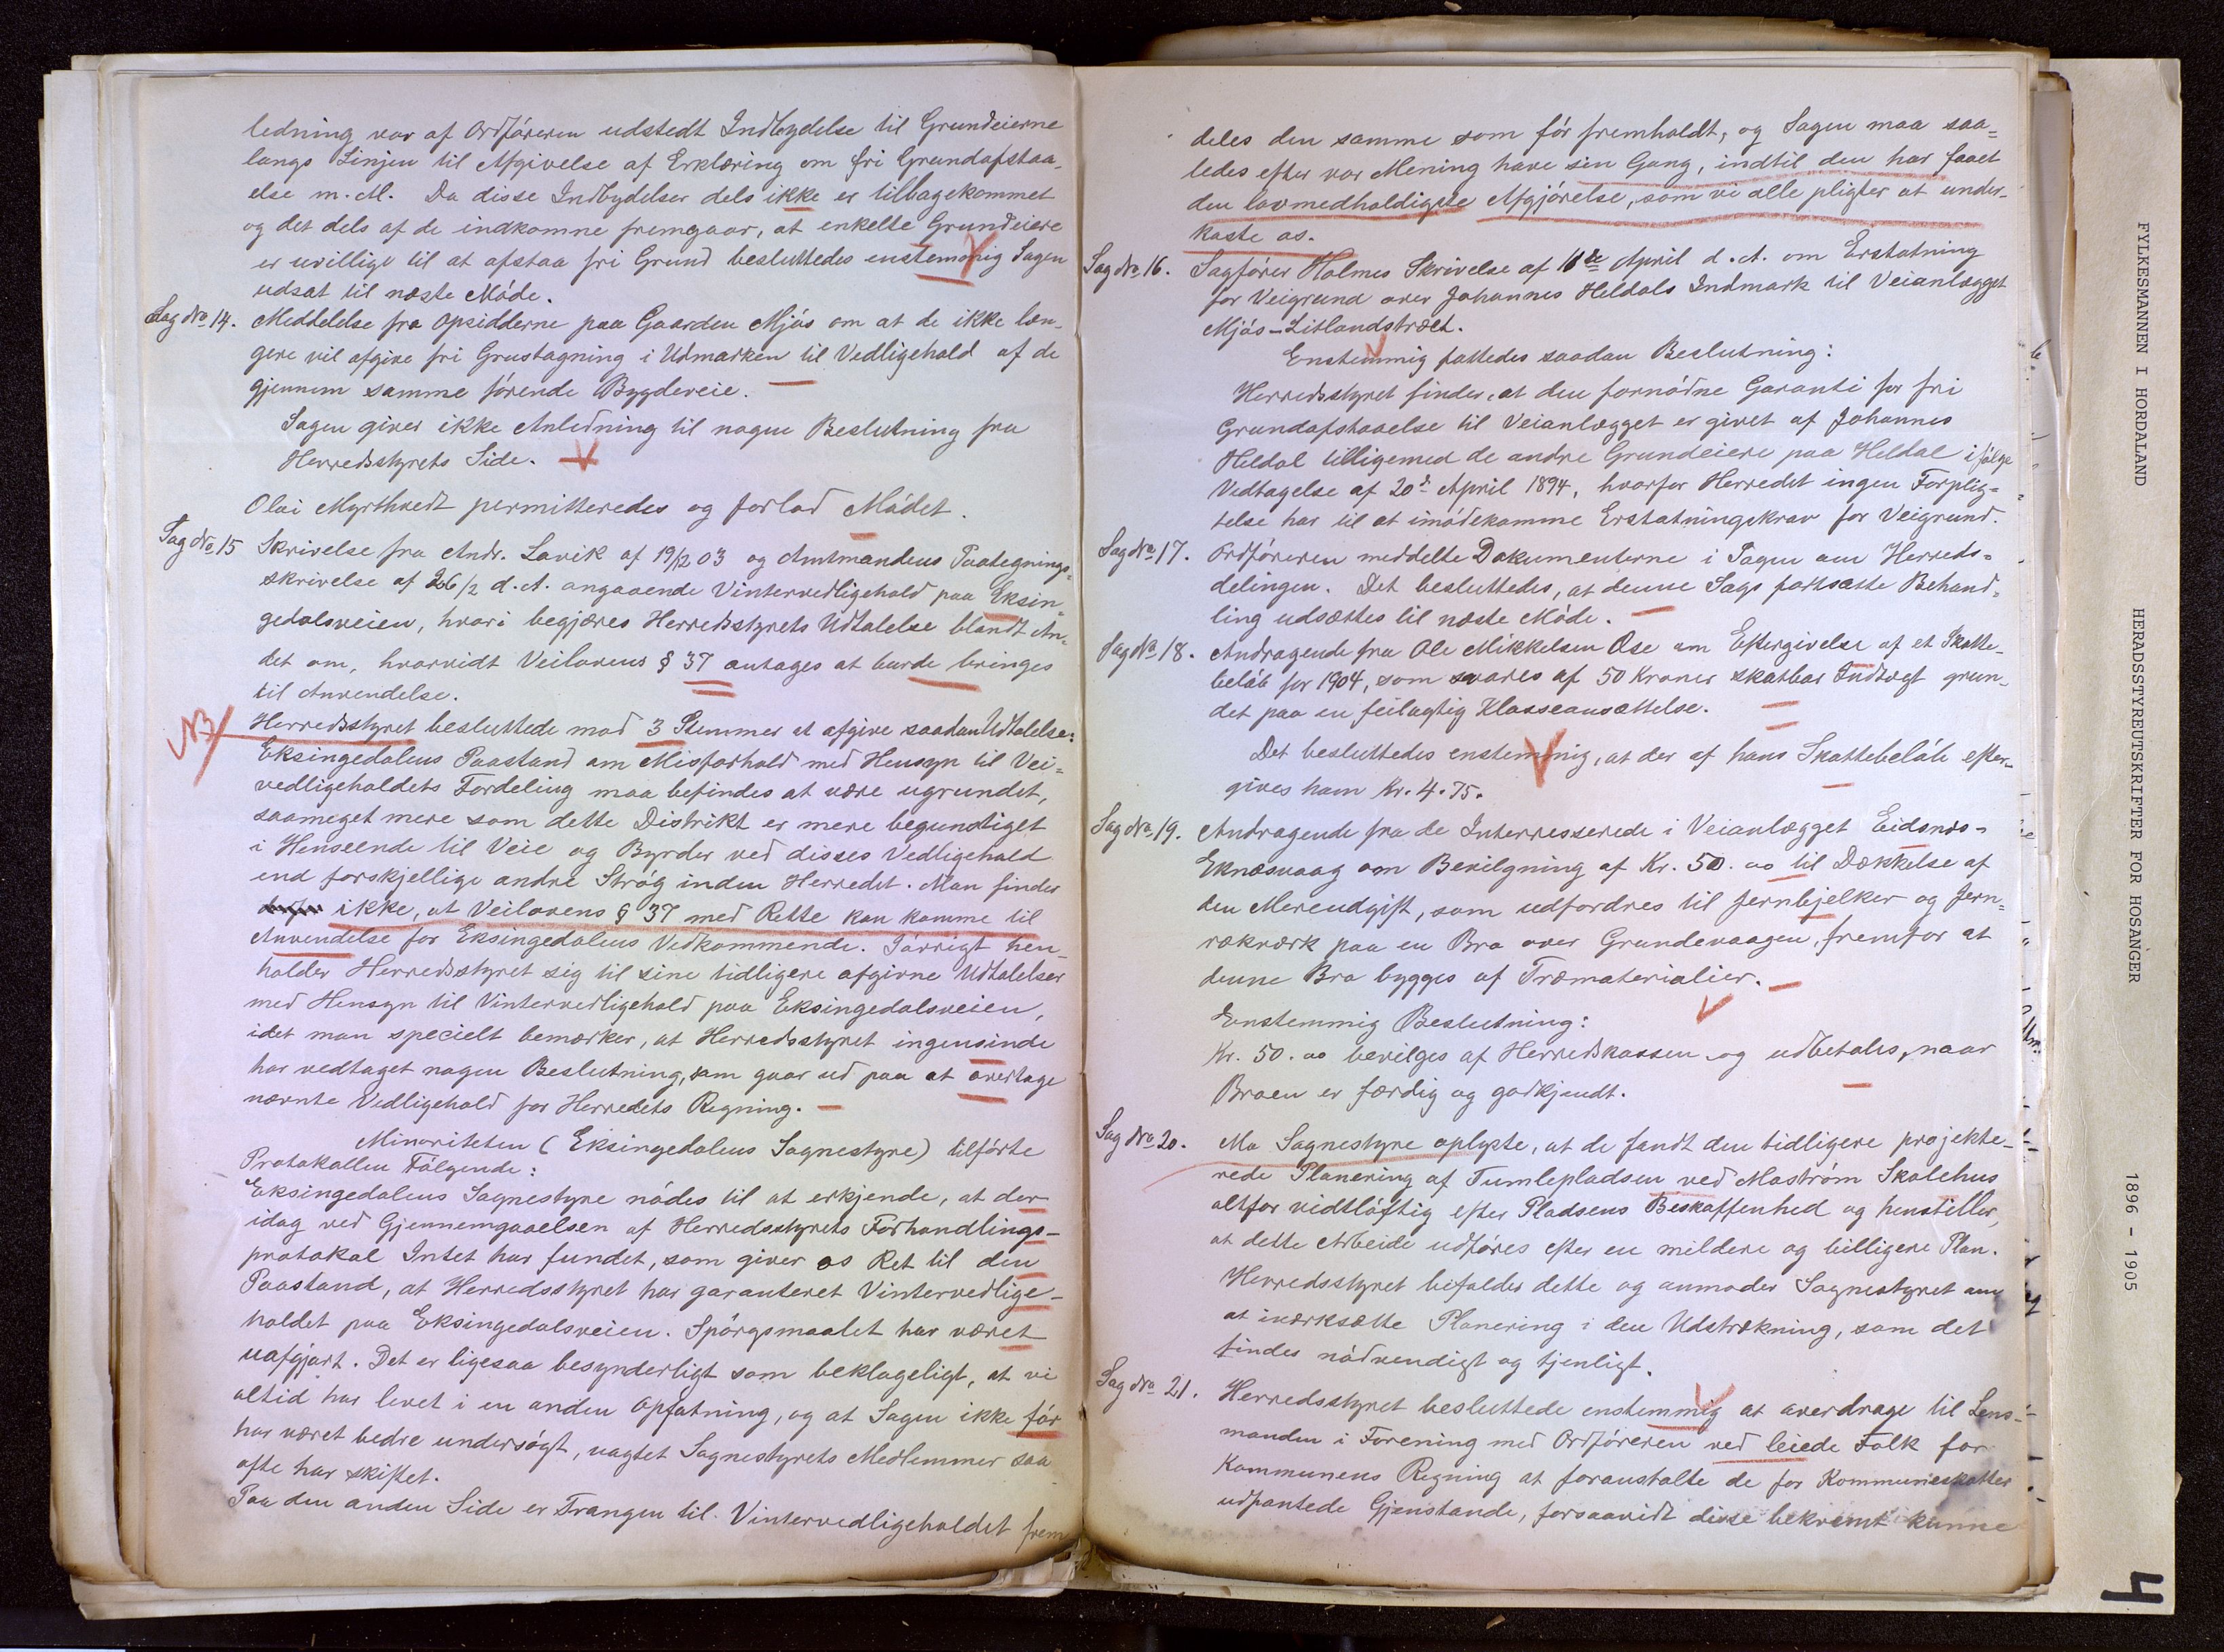 ledning var af Ordføreren udstedt Indbydelse til Grundeierne
langs Linjen til Afgivelse af Erklæring om fri Grundafstaa-
else m. M. Da disse Indbydelser dels ikke er tilbagekommet
og det dels af de indkomne fremgaar, at enkelte Grundeiere
er uvillige til at afstaa fri Grund besluttedes enstemmig Sagen
udsat til næste Møde.
Sag No. 14. Meddelelse fra Opsidderne paa Gaarden Mjøs om at de ikke læn-
gere vil afgive fri Grustagning i Udmarken til Vedligehold af de
gjennem samme førende Bygdeveie.
Sagen giver ikke Anledning til nogen Beslutning fra
Herredsstyrets Side.
Olai Myrthvedt permitteredes og forlod Mødet.
Sag No. 15 Skrivelse fra Andr. Lavik af 19/12 03 og Amtmandens Paategnings-
skrivelse af 26/2 d. A. angaaende Vintervedligehold paa Eksin-
gedalsveien, hvori begjæres Herredsstyrets Udtalelse blandt An-
det om, hvorvidt Veilovens § 37 antages at burde bringes
til Anvendelse.
NB Herredsstyret besluttede mod 3 Stemmer at afgive saadan Udtalelse:
Eksingedalens Paastand om Misforhold med Hensyn til Vei-
vedligeholdets Fordeling maa befindes at være ugrundet,
saameget mere som dette Distrikt er mere begunstiget
i Henseende til Veie og Byrder ved disses Vedligehold
end forskjellige andre Strøg inden Herredet. Man finder
ikke, at Veilovens § 37 med Rette kan komme til
Anvendelse for Eksingedalens Vedkommende. Iøvrigt hen-
holder Herredsstyret sig til sine tidligere afgivne Udtalelser
med Hensyn til Vintervedligehold paa Eksingedalsveien,
idet man specielt bemærker, at Herredsstyret ingensinde
har vedtaget nogen Beslutning, som gaar ud paa at overtage
nævnte Vedligehold for Herredets Regning.
Minoriteten (Eksingedalens Sognestyre) tilførte
Protokollen Følgende:
Eksingedalens Sognestyre nødes til at erkjende, at der
idag ved Gjennemgaaelsen af Herredsstyrets Forhandlings-
protokol Intet har fundet, som giver os Ret til den
Paastand, at Herredsstyret har garanteret Vintervedlige-
holdet paa Eksingedalsveien. Spørgsmaalet har været
uafgjort. Det er ligesaa besynderligt som beklageligt, at vi
altid har levet i en anden Opfatning, og at Sagen ikke før
har været bedre undersøgt, uagtet Sognestyrets Medlemmer saa
ofte har skiftet.
Paa den anden Side er Trangen til Vintervedligeholdet frem
deles den samme som før fremholdt, og Sagen maa saa-
ledes efter vor Mening have sin Gang, indtil den har faaet
den lovmedholdigste Afgjørelse, som vi alle pligter at under-
kaste os.
Sag No. 16. Sagfører Holmes Skrivelse af 16de April d. A. om Erstatning
for Veigrund over Johannes Heldals Indmark til Veianlægget
Mjøs-Litlandstræet.
Enstemmig fattedes saadan Beslutning:
Herredsstyret finder, at den fornødne Garanti for fri
Grundafstaaelse til Veianlægget er givet af Johannes
Heldal tilligemed de andre Grundeiere paa Heldal ifølge
Vedtagelse af 20de April 1894, hvorfor Herredet ingen Forplig-
telse har til at imødekomme Erstatningskrav for Veigrund.
Sag No. 17. Ordføreren meddelte Dokumenterne i Sagen om Herreds-
delingen. Det besluttedes, at denne Sags fortsatte Behand-
ling udsættes til næste Møde.
Sag No. 18. Andragende fra Ole Mikkelsen Ose om Eftergivelse af et Skatte-
beløb for 1904, som svares af 50 Kroner skatbar Indtægt grun-
det paa en feilagtig Klasseansættelse.
Det besluttedes enstemmig, at der af hans Skattebeløb efter-
gives ham Kr. 4.75.
Sag No. 19. Andragende fra de Interresserede i Veianlægget Eidsnes-
Eknæsvaag om Bevilgning af Kr. 50.00 til Dækkelse af
den Mereudgift, som udfordres til Jernbjelker og Jern-
rækværk paa en Bro over Grundevaagen, fremfor at
denne Bro bygges af Træmaterialier.
Enstemmig Beslutning:
Kr. 50.00 bevilges af Herredskassen og udbetales, naar
Broen er færdig og godkjendt.
Sag No. 20. Mo Sognestyre oplyste, at de fandt den tidligere projekte-
rede Planering af Tumlepladsen ved Mostrøm Skolehus
altfor vidtløftig efter Pladsens Beskaffenhed og henstiller,
at dette Arbeide udføres efter en mildere og billigere Plan.
Herredsstyret bifalder dette og anmoder Sognestyret om
at iværksætte Planering i den Udstrækning, som det
findes nødvendigt og tjenligt.
Sag No. 21. Herredsstyret besluttede enstemmig at overdrage til Lens-
manden i Forening med Ordføreren ved leiede Folk for
Kommunens Regning at foranstalte de for Kommuneskatter
udpantede Gjenstande, forsaavidt disse bekvemt kunne
FYLKESMANNEN I HORDALAND HERADSSTYREUTSKRIFTER FOR HOSANGER 1896 - 1905
4